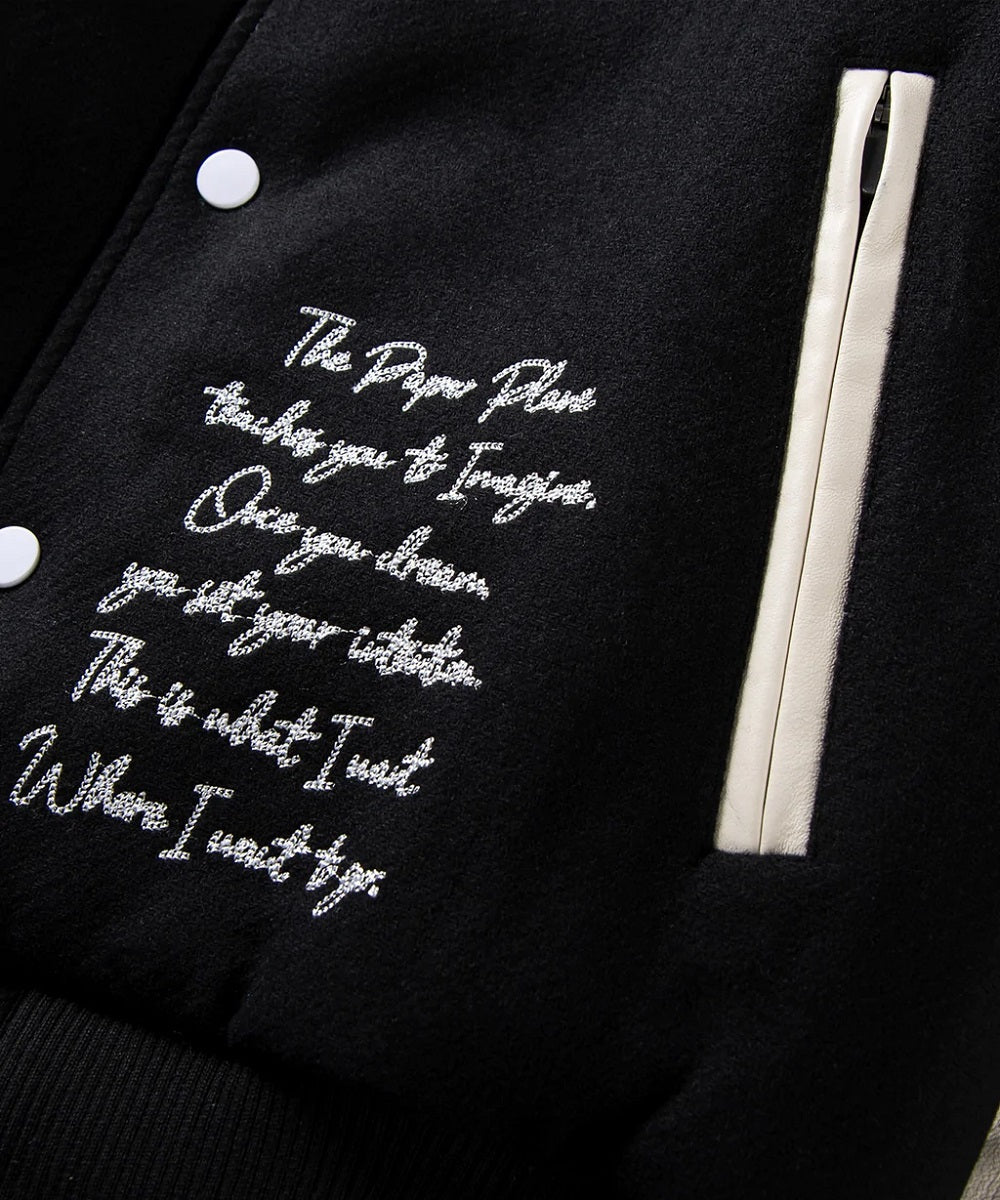 The Paper Plane
teaches you to Imagine.
Once you dream
you set your intention.
This is what I want
Where I want to go.